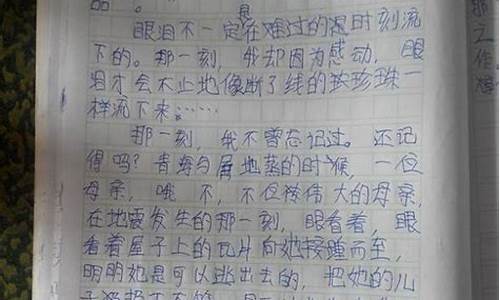 品。
眼泪不一定在难过的是时刻流
下的。那一刻，我却因为感动，眼
泪才会不止地像断了线的珍珠一
样流下来……
那一刻，我不曾忘记过。还记
得吗？青海与 地 的时候，一位
母亲，哦不，不位 伟大的母亲
在地震发生的那一刻，眼看着，眼
看着屋子上的瓦片向她接踵而至，
明明她是可以逃出去的，把她的儿